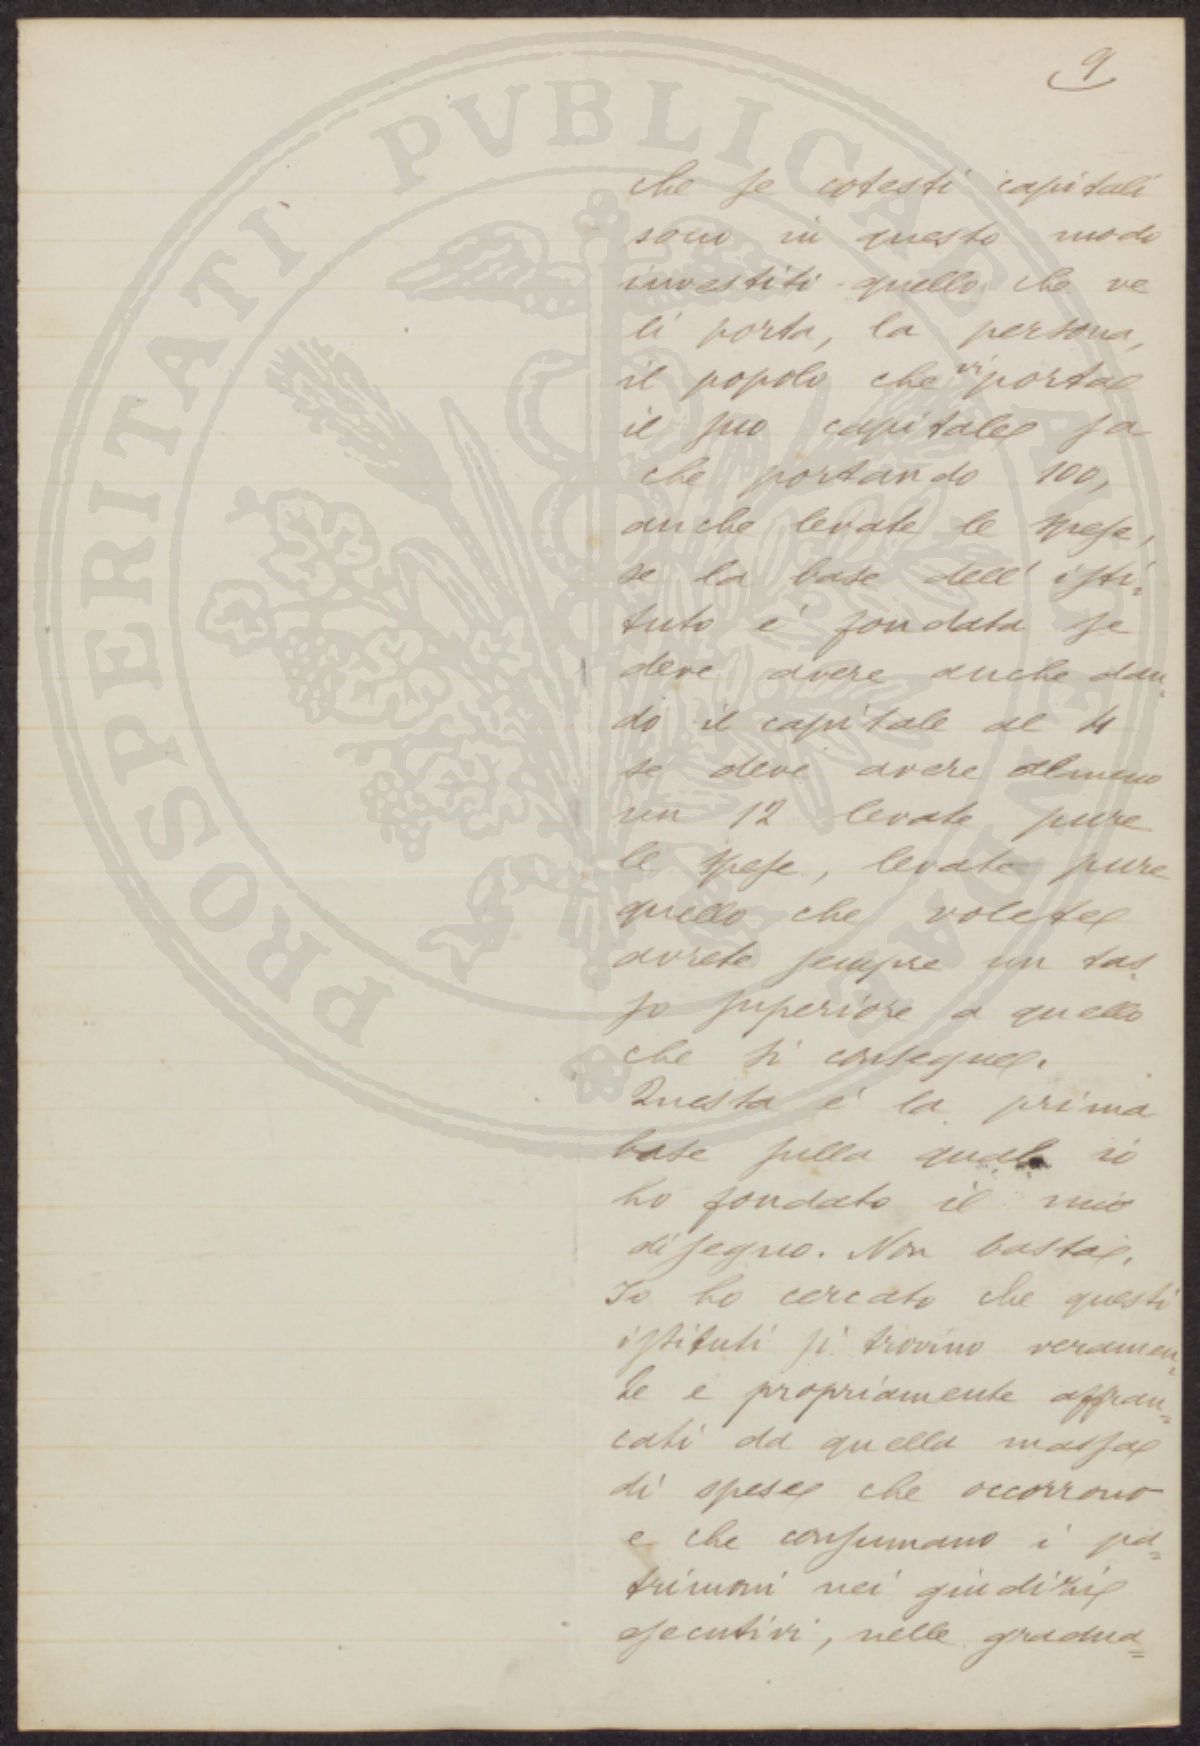 9
che se cotesti capitali
sono in questo modo
investiti quello che ve
li porta, la persona,
il popolo che vi porta
il suo capitale sa
che portando 100,
anche levate le spese,
se la base dell'isti-
tuto è fondata se
deve avere anche dan-
do il capitale al 4
se deve avere almeno
un 12 levate pure
le spese, levate pure
quello che volete
avrete sempre un tas-
so superiore a quello
che si consegue.
Questa è la prima
base sulla quale io
ho fondato il mio
disegno. Non basta.
Io ho cercato che questi
istituti si trovino veramen-
te e propriamente affran-
cati da quella massa
di spese che occorrono
e che consumano i pa-
trimoni nei giudizii
esecutivi, nelle gradua-
PROSPERITATI PVBLICAE AVGENDAE